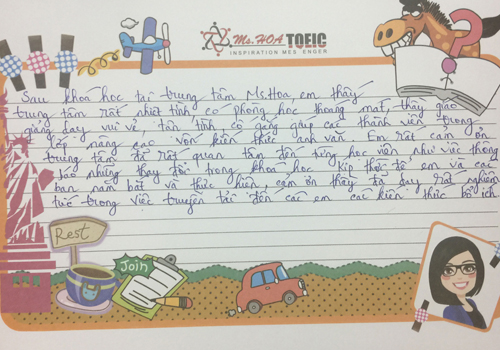 Ms. HOA TOEIC
INSPIRATION MES ENGER
Sau khoá học tại trung tâm Ms.Hoa em thấy
trung tâm rất nhiệt tình, có phòng học thoáng mát, thầy giáo
giảng dạy vui vẻ, tận tình, cố gắng giúp các thành viên trong
lớp nâng cao vốn kiến thức anh văn. Em rất cảm ơn
trung tâm đã rất quan tâm đến từng học viên như việc thông
báo những thay đổi trong khoá học kịp thời để em và các
bạn nắm bắt và thực hiện, cảm ơn thầy đã dạy rất nghiêm
túc trong việc truyền tải đến các em các kiến thức bổ ích.
Rest
Join